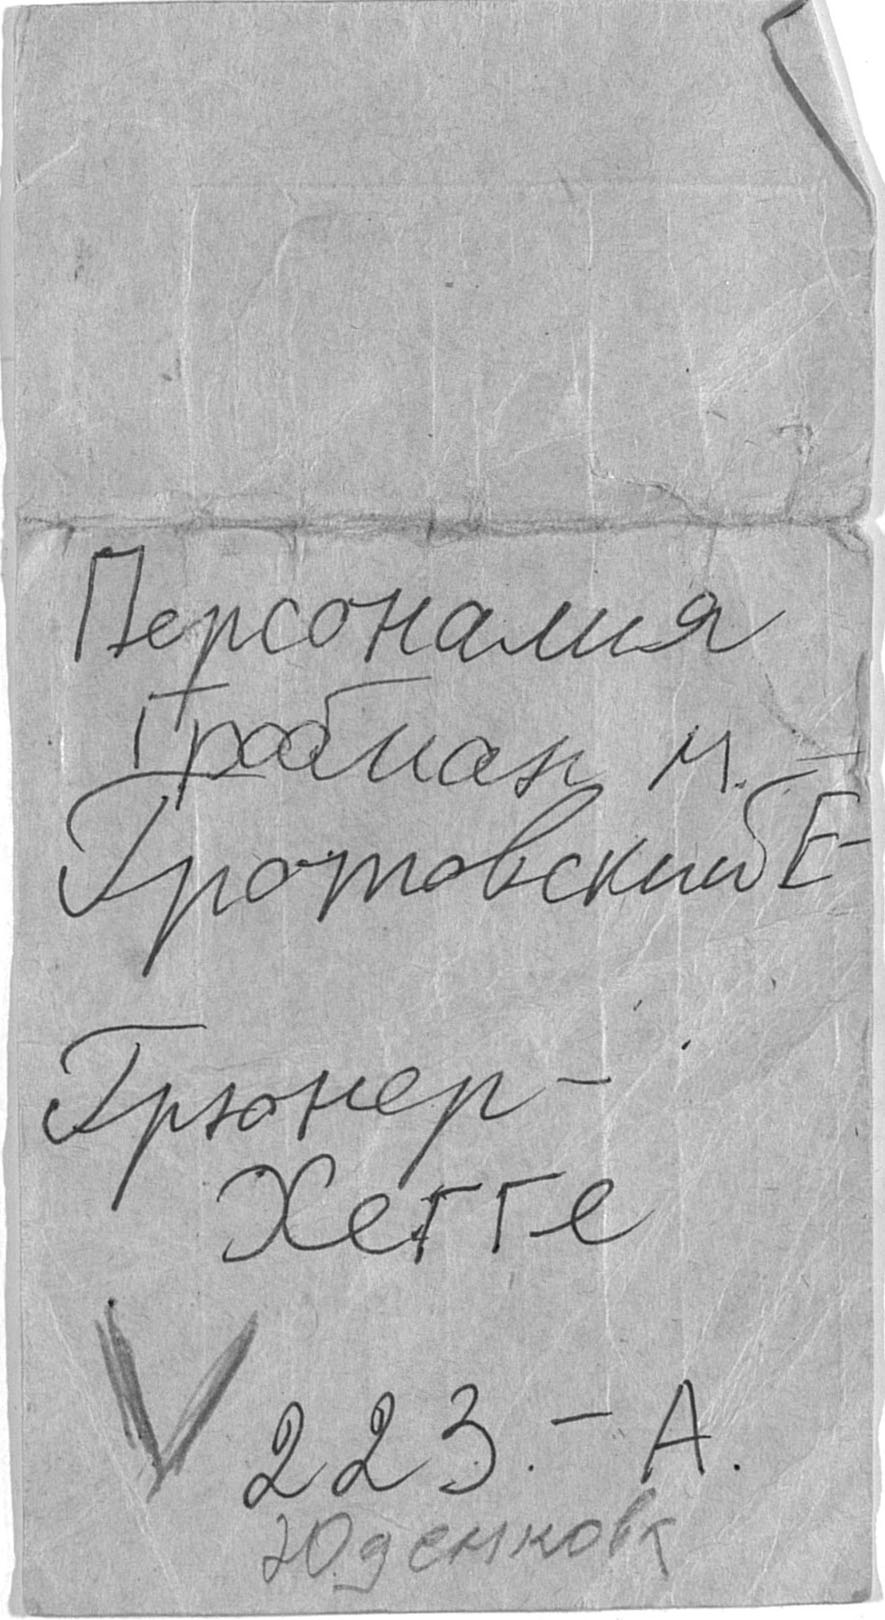 Персоналия
Гробман М. –
Гротовский Е-
Грюнер –
Хегге
V 223. – А.